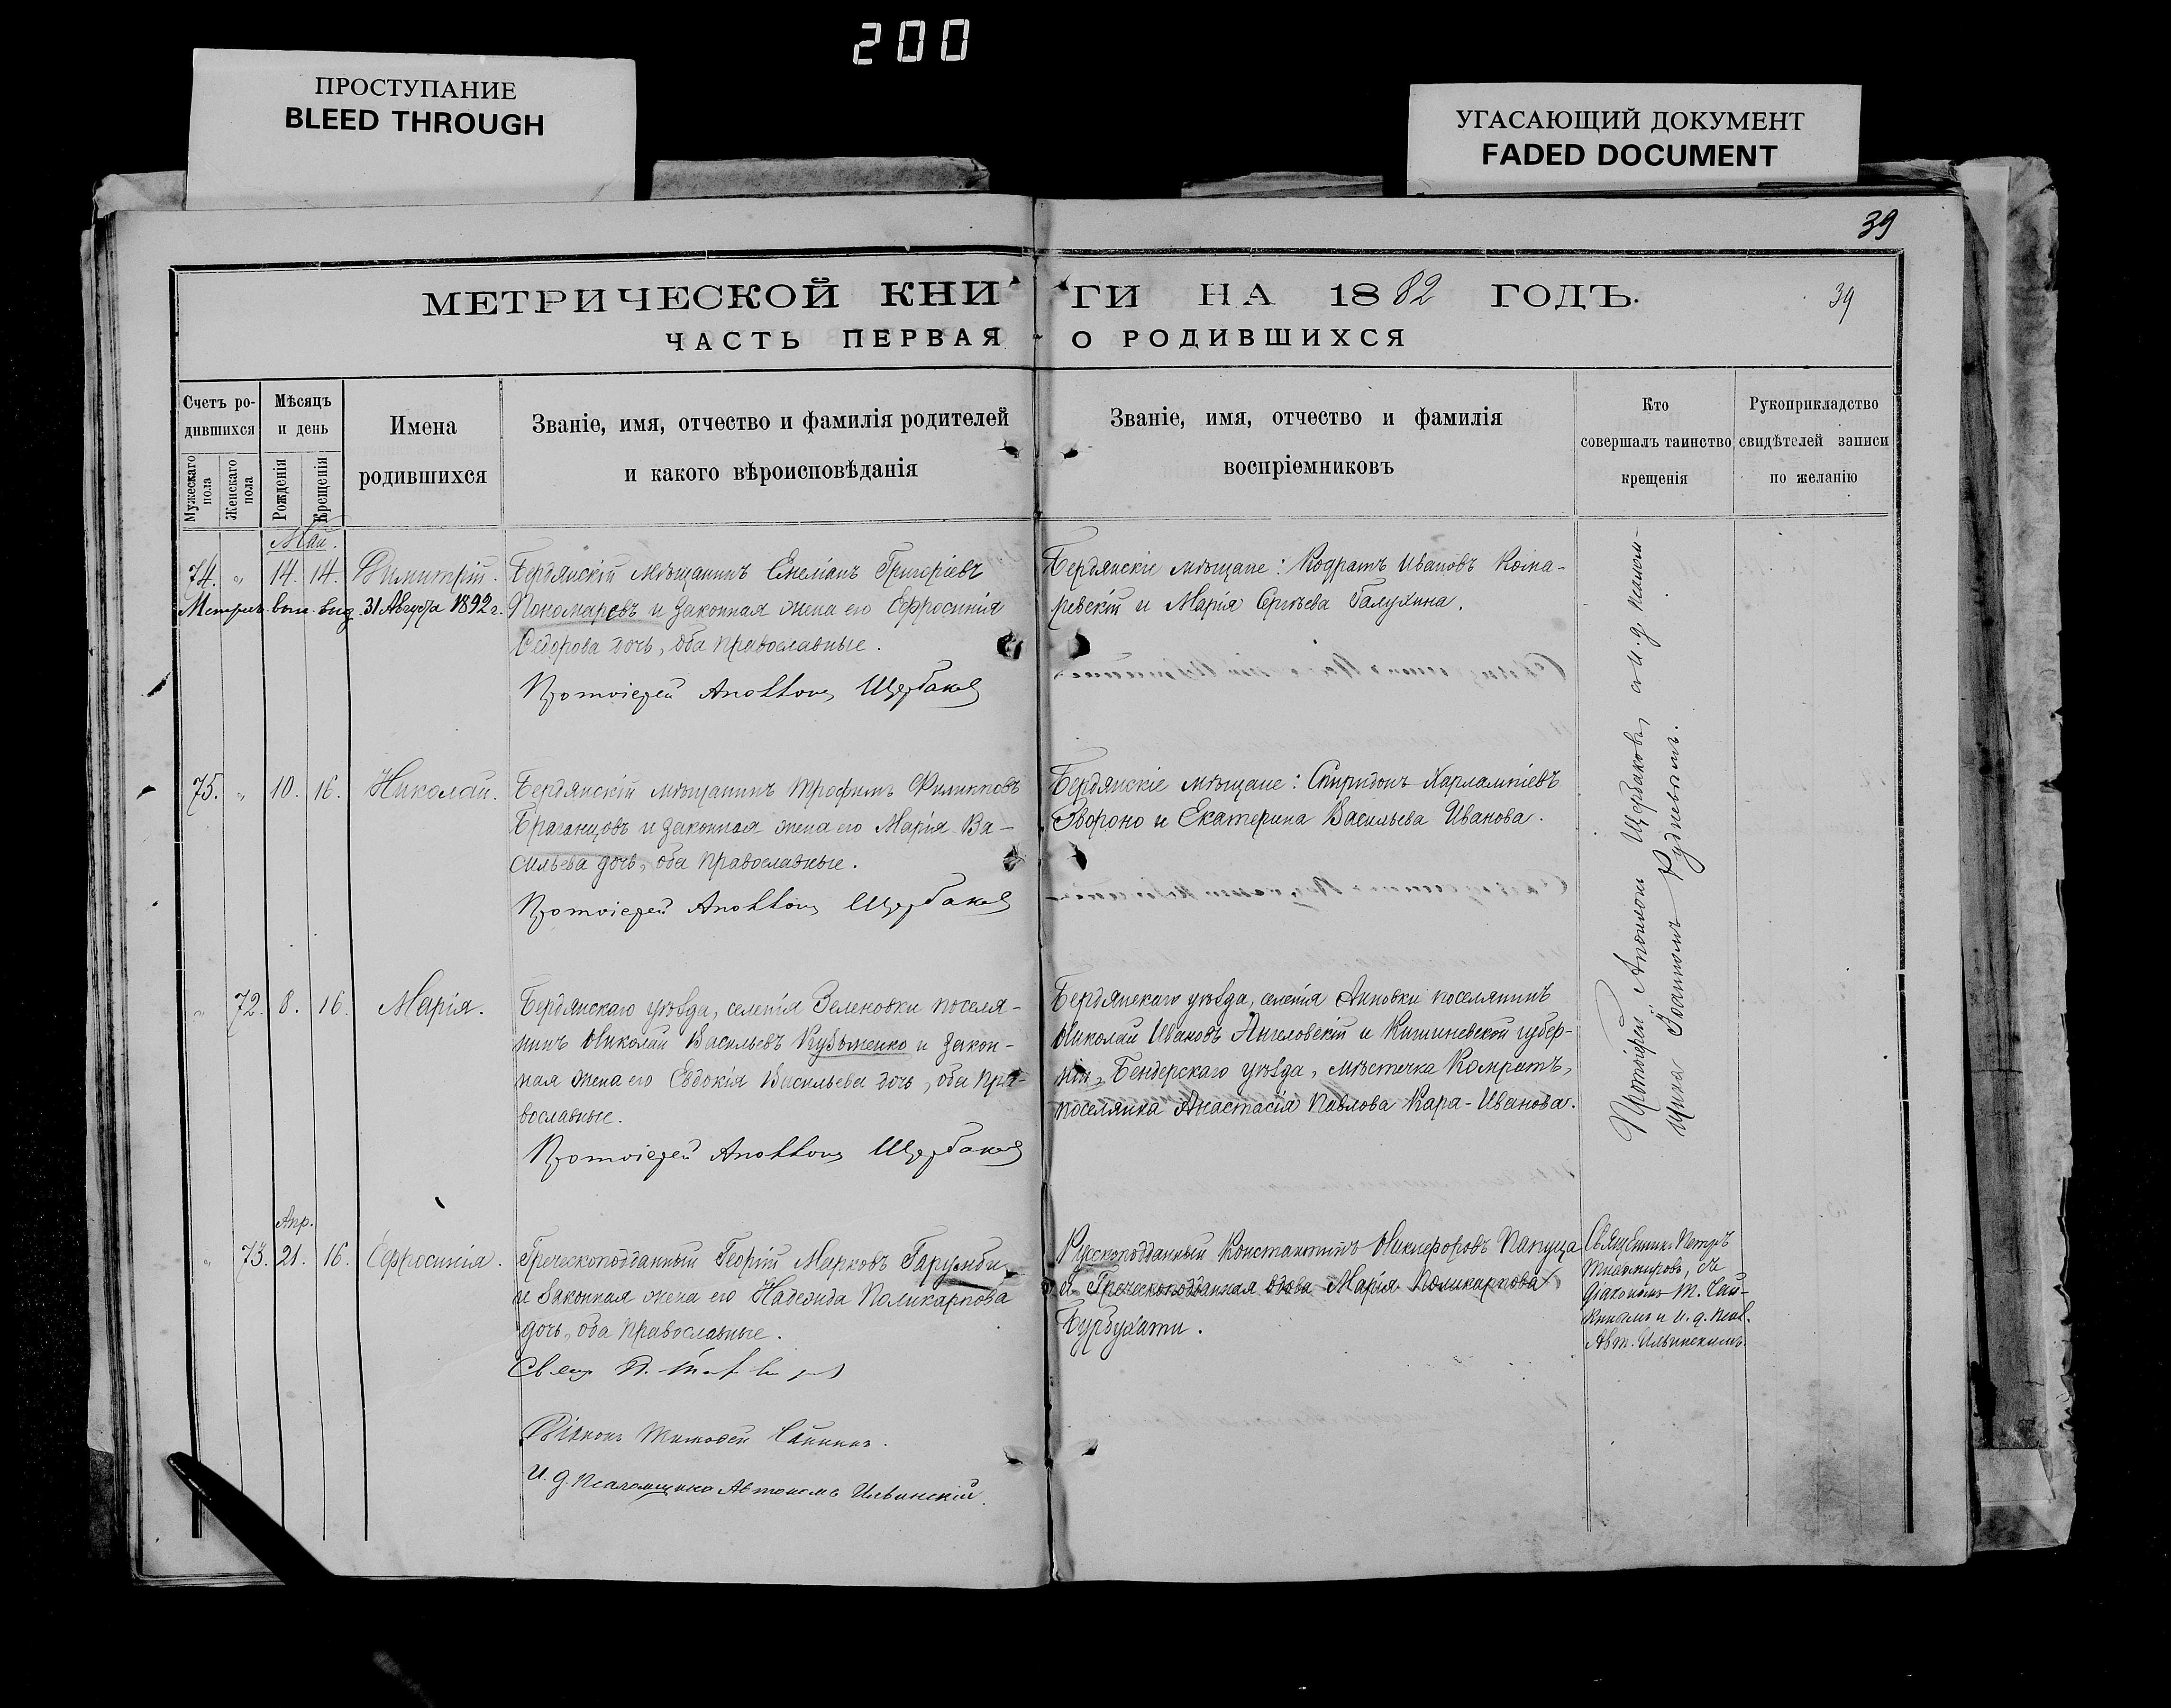 200
ПРОСТУПАНИЕ
BLEED THROUGH
УГАСАЮЩИЙ ДОКУМЕНТ
FADED DOCUMENT
39
МЕТРИЧЕСКОЙ КНИГИ НА 1882 ГОДЪ.
39
ЧАСТЬ ПЕРВАЯ О РОДИВШИХСЯ
Счетъ ро-
дившихся
Мужескаго пола
Женскаго пола
Мѣсяцъ
и день
Рожденія
Крещенія
Имена
родившихся
Званіе, имя, отчество и фамилія родителей
и какого вѣроисповѣданія
Званіе, имя, отчество и фамилія
воспріемниковъ
Кто
совершалъ таинство
крещенія
Рукоприкладство
свидѣтелей записи
по желанію
Май.
74. „ 14. 14. Димитрій.
Метрич. вып. выд. 31 Августа 1892 г.
Бердянскій мѣщанинъ Емеліанъ Григоріевъ
Пономаревъ и законная жена его Ефросинія
Ѳедорова дочь, оба православные.
Протоіерей Аполлонъ Щербаковъ
Бердянскіе мѣщане: Кодратъ Ивановъ Кома-
ревскій и Марія Сергѣева Галухина.
75. „ 10. 16. Николай.
Бердянскій мѣщанинъ Трофимъ Филипповъ
Браганцовъ и законная жена его Марія Ва-
сильева дочь, оба православные.
Протоіерей Аполлонъ Щербаковъ
Бердянскіе мѣщане: Спиридонъ Харлампіевъ
Звороно и Екатерина Васильева Иванова.
„ 72. 8. 16. Марія.
Бердянскаго уѣзда, селенія Зеленовки поселя-
нинъ Николай Васильевъ Кузьменко и закон-
ная жена его Евдокія Васильева дочь, оба пра-
вославные.
Протоіерей Аполлонъ Щербаковъ
Бердянскаго уѣзда, селенія Анновки поселянинъ
Николай Ивановъ Ангеловскій и Кишиневской губер-
ніи, Бендерскаго уѣзда, мѣстечка Комратъ,
поселянка Анастасія Павлова Кара-Иванова.
Протоіерей Аполлонъ Щербаковъ, съ и. д. псалом-
щика Іоанномъ Рудневымъ.
Апр.
„ 73. 21. 16. Ефросинія.
Греческоподданный Георгій Марковъ Гарумби
и законная жена его Надежда Поликарпова
дочь, оба православные.
Свящ. П.
Діаконъ Тимоѳей Чайкинъ.
И. д. псаломщика Автономъ Ильинскій.
Русскоподданный Константинъ Никифоровъ Папуца
и Греческоподданная вдова Марія Поликарпова
Бурбухати.
Священникъ Петръ
съ
діакономъ Т. Чай-
кинымъ и и. д. псал.
Авт. Ильинскимъ.